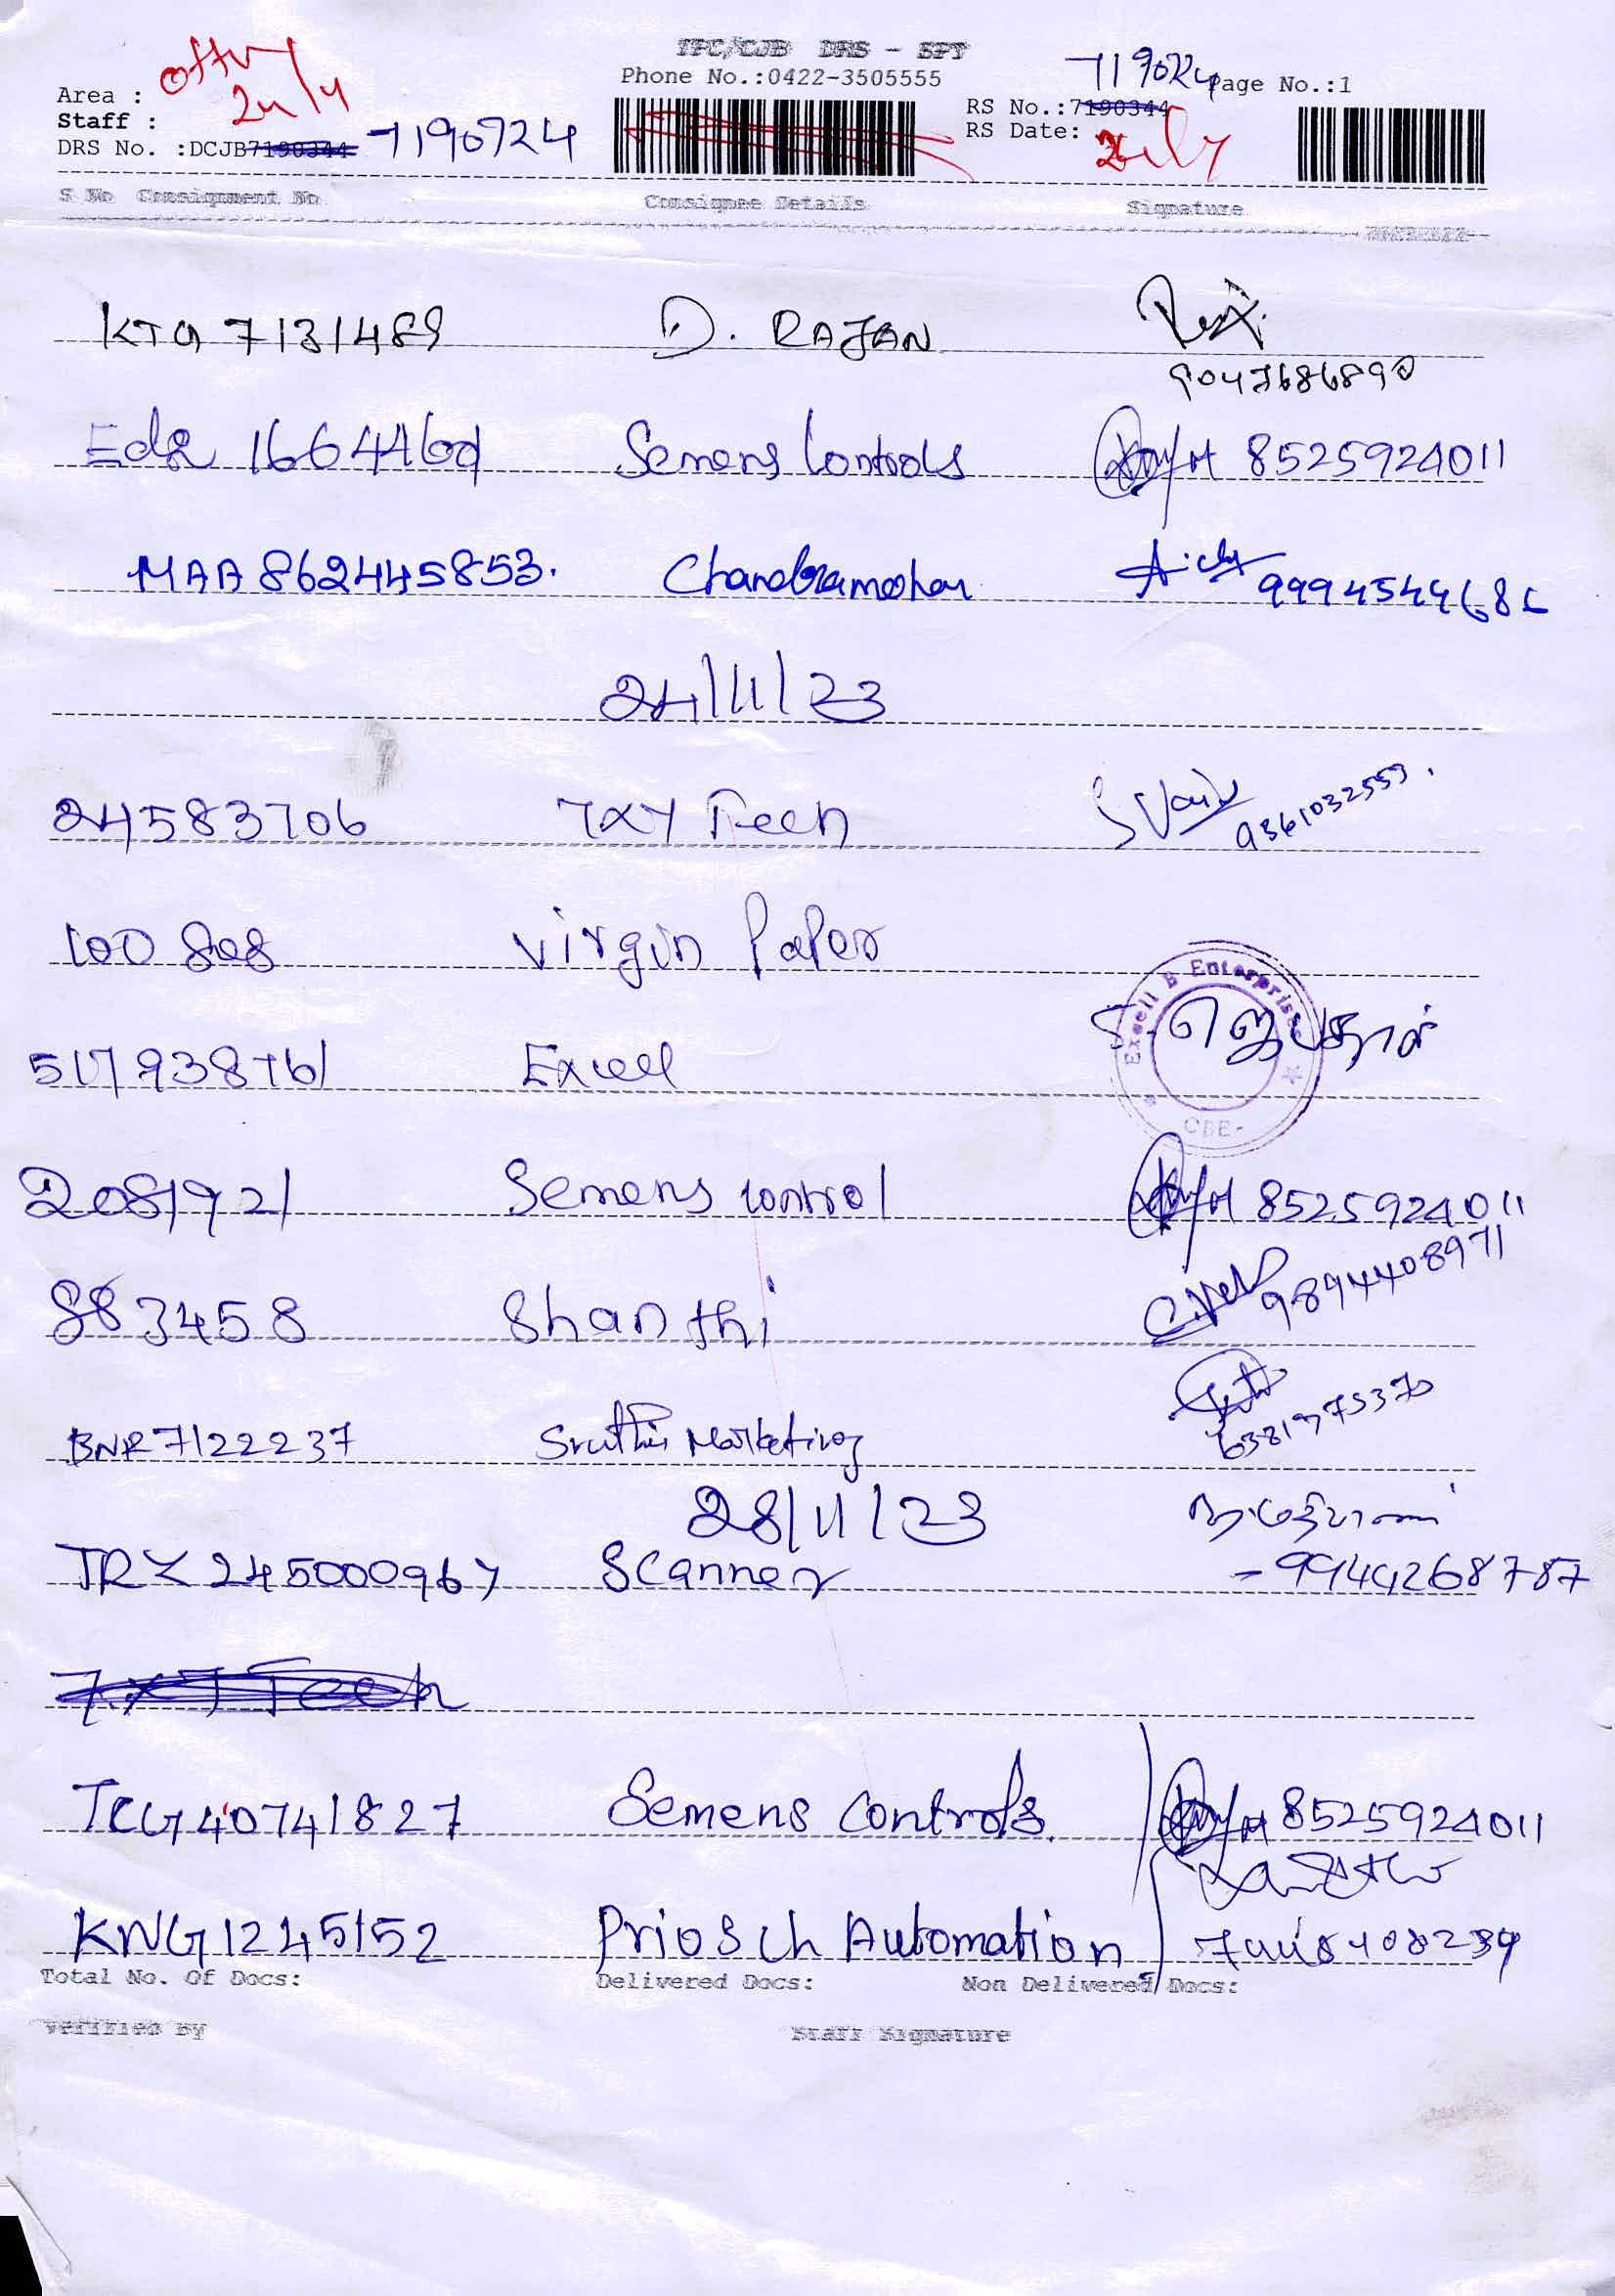 TPC/CJB DRS - SPT
Phone No.:0422-3505555
7190724 Page No.:1
Area :
24/4
RS No.:7190344
Staff :
RS Date:
DRS No. :DCJB7190344 7190724
S No Consignment No Consignee Details Signature
KTG 7131489 D. RAJAN
9047686890
Edr 16644609 Semens Controls 8525924011
MAA 862445853. Chandramohan 9994544686
24/11/23
24583706 7XY Teen 9361032553.
100 808 Virgin Paper
Excell B Enterprises
CBE-
517938761 Excell
2081921 Semens control 8525924011
883458 Shanthi 9894408971
BNR 7122237 Sruthi Marketing 6381975370
28/11/23
TRZ 245000967 Scanner - 9944268787
TCG 40741827 Semens Controls. 8525924011
KNG 1245152 Priosch Automation
Total No. Of Docs: Delivered Docs: Non Delivered Docs:
Verified By Staff Signature